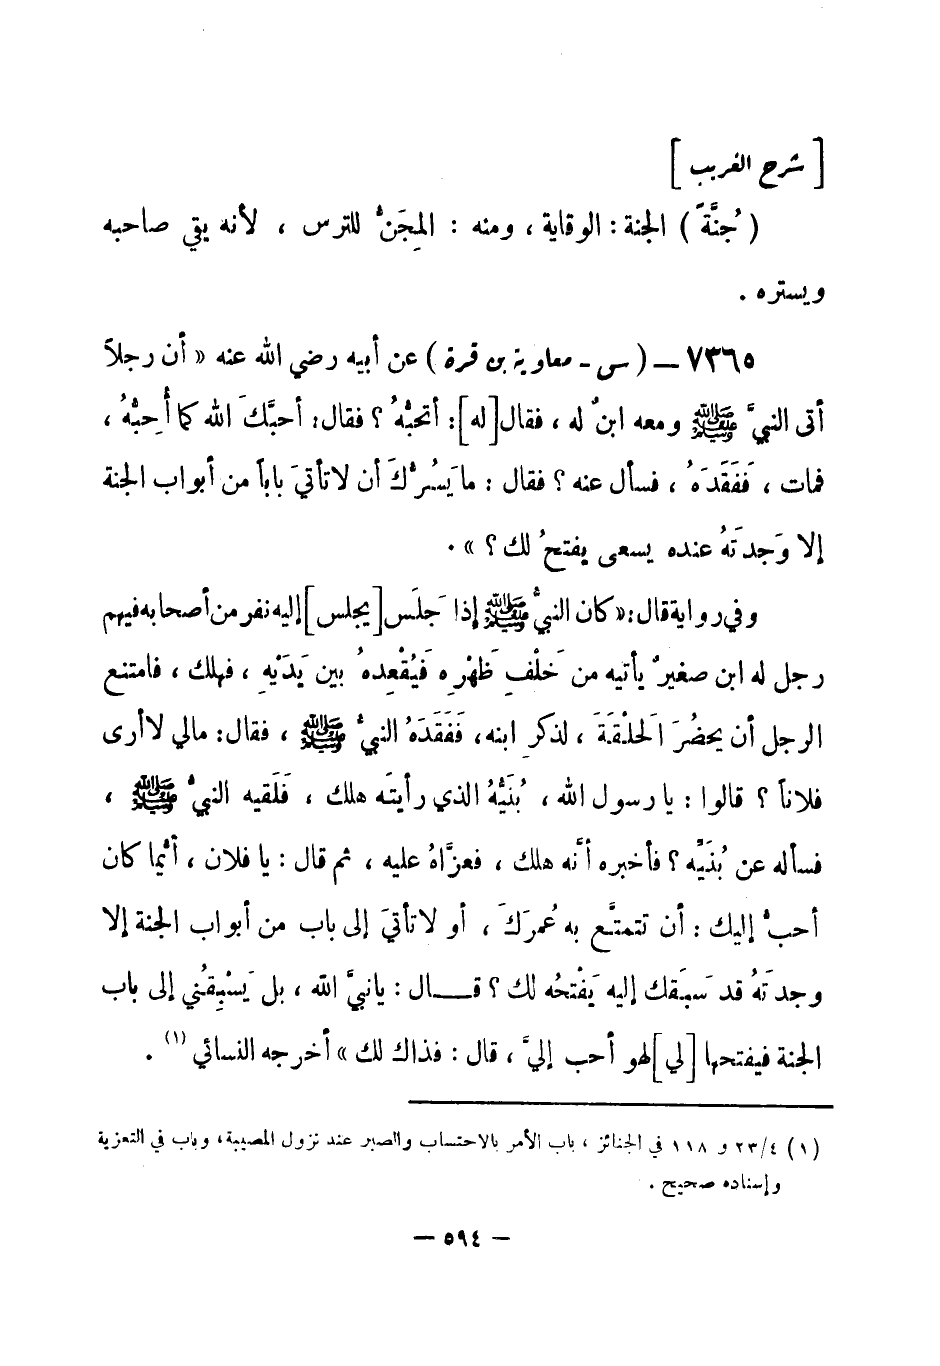 [ شرح الغريب ]
( جُنَّةً ) الجنة : الوقاية ، ومنه : المِجَنُّ للترس ، لأنه يقي صاحبه
ويستره .
٧٣٦٥ – ( س - معاوية بن قرة ) عن أبيه رضي الله عنه « أن رجلاً
أتى النبيَّ ﷺ ومعه ابنٌ له ، فقال [له] : أتحبُّهُ ؟ فقال : أحبَّكَ الله كما أُحِبُّهُ ،
فمات ، فَفَقَدَهُ ، فسأل عنه ؟ فقال : ما يَسُرُّكَ أن لا تأتيَ باباً من أبواب الجنة
إلا وَجدتَهُ عنده يسعى يفتحُ لك ؟ » .
وفي رواية قال : « كان النبيُّ ﷺ إذا جَلَس [يجلس] إليه نفر من أصحابه فيهم
رجل له ابن صغيرٌ يأتيه من خَلْفِ ظَهْرِه فَيُقْعِدهُ بين يَدَيْهِ ، فهلك ، فامتنع
الرجل أن يحضُرَ الحلْقةَ ، لذكرِ ابنه ، فَفَقَدَهُ النبيُّ ﷺ ، فقال : مالي لا أرى
فلاناً ؟ قالوا : يا رسول الله ، بُنَيُّهُ الذي رأيتَه هلك ، فَلَقيه النبيُّ ﷺ ،
فسأله عن بُنَيِّه ؟ فأخبره أنَّه هلك ، فعزَّاهُ عليه ، ثم قال : يا فلان ، أيُّما كان
أحبُّ إليك : أن تتمتَّع به عُمرَكَ ، أو لا تأتيَ إلى باب من أبواب الجنة إلا
وجدتَهُ قد سَبَقك إليه يَفْتحُه لك ؟ قـــال : يا نبيَّ الله ، بل يَسْبِقُني إلى باب
الجنة فيفتحها [لي] لهو أحب إليَّ ، قال : فذاك لك » أخرجه النسائي (١) .
(١) ٢٣/٤ و ١١٨ في الجنائز ، باب الأمر بالاحتساب والصبر عند نزول المصيبة ، وباب في التعزية
وإسناده صحيح .
– ٥٩٤ –